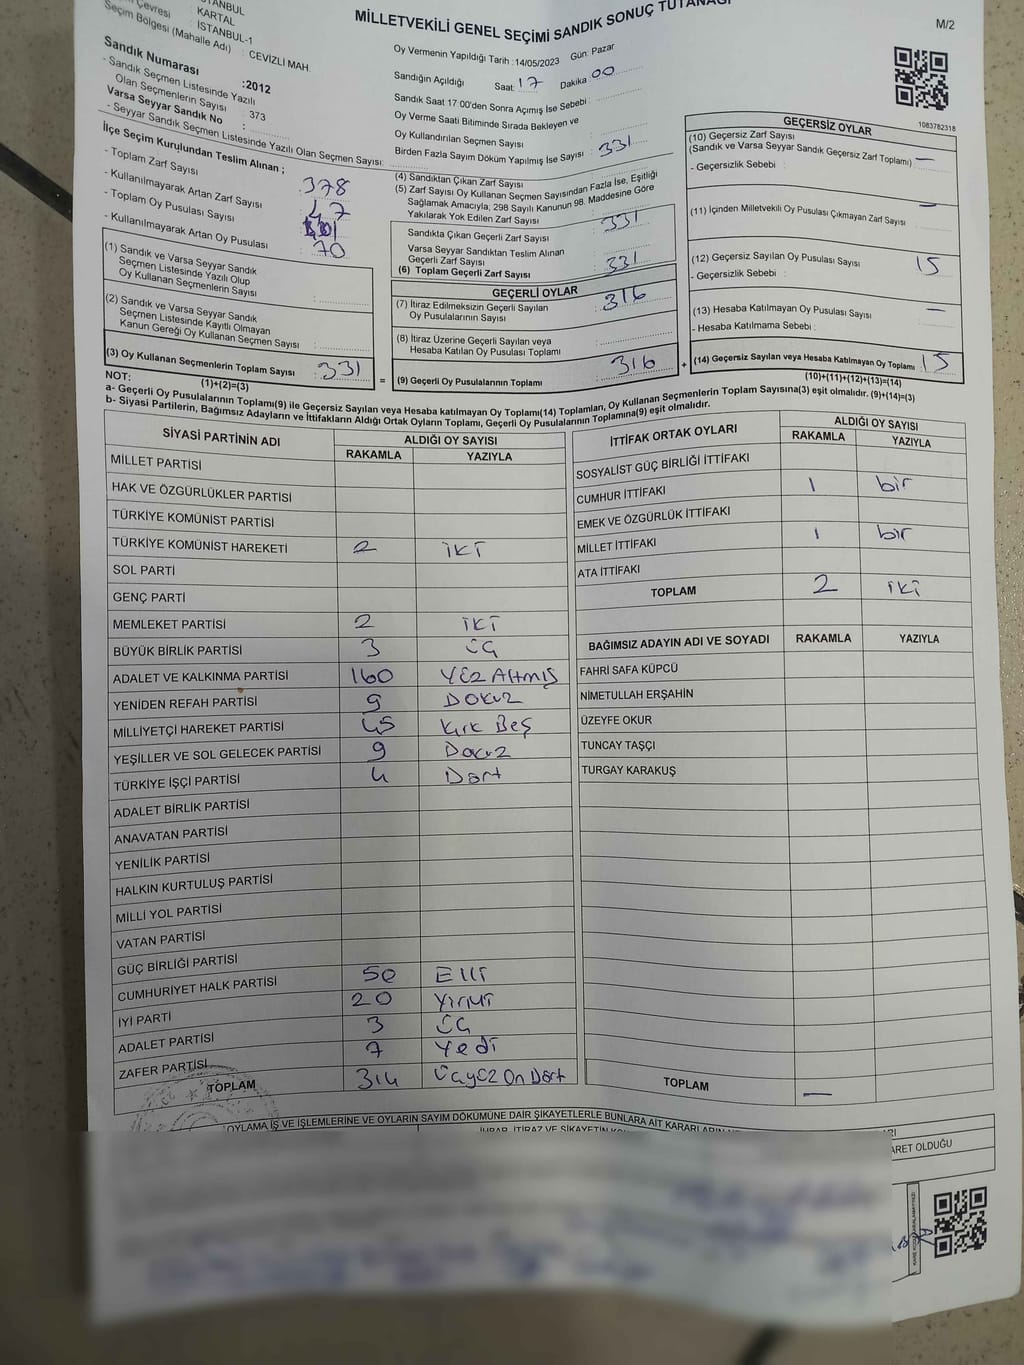 MİLLETVEKİLİ GENEL SEÇİMİ SANDIK SONUÇ TUTANAĞI
M/2
İSTANBUL
Seçim Çevresi
KARTAL
İSTANBUL-1
Seçim Bölgesi (Mahalle Adı) : CEVİZLİ MAH.
Sandık Numarası :2012
- Sandık Seçmen Listesinde Yazılı
Olan Seçmenlerin Sayısı : 373
Varsa Seyyar Sandık No :
- Seyyar Sandık Seçmen Listesinde Yazılı Olan Seçmen Sayısı:
İlçe Seçim Kurulundan Teslim Alınan ;
- Toplam Zarf Sayısı : 378
- Kullanılmayarak Artan Zarf Sayısı : 47
- Toplam Oy Pusulası Sayısı
- Kullanılmayarak Artan Oy Pusulası : 70
(1) Sandık ve Varsa Seyyar Sandık
Seçmen Listesinde Yazılı Olup
Oy Kullanan Seçmenlerin Sayısı :
(2) Sandık ve Varsa Seyyar Sandık
Seçmen Listesinde Kayıtlı Olmayan
Kanun Gereği Oy Kullanan Seçmen Sayısı :
(3) Oy Kullanan Seçmenlerin Toplam Sayısı : 331
(1)+(2)=(3)
Oy Vermenin Yapıldığı Tarih :14/05/2023 Gün: Pazar
Sandığın Açıldığı Saat: 17 Dakika: 00
Sandık Saat 17:00'den Sonra Açımış İse Sebebi :
Oy Verme Saati Bitiminde Sırada Bekleyen ve
Oy Kullandırılan Seçmen Sayısı :
Birden Fazla Sayım Döküm Yapılmış İse Sayısı :
(4) Sandıktan Çıkan Zarf Sayısı : 331
(5) Zarf Sayısı Oy Kullanan Seçmen Sayısından Fazla İse, Eşitliği
Sağlamak Amacıyla; 298 Sayılı Kanunun 98. Maddesine Göre
Yakılarak Yok Edilen Zarf Sayısı :
Sandıkta Çıkan Geçerli Zarf Sayısı : 331
Varsa Seyyar Sandıktan Teslim Alınan
Geçerli Zarf Sayısı :
(6) Toplam Geçerli Zarf Sayısı : 331
GEÇERLİ OYLAR
(7) İtiraz Edilmeksizin Geçerli Sayılan
Oy Pusulalarının Sayısı : 316
(8) İtiraz Üzerine Geçerli Sayılan veya
Hesaba Katılan Oy Pusulası Toplamı :
= (9) Geçerli Oy Pusulalarının Toplamı : 316 +
1083782318
GEÇERSİZ OYLAR
(10) Geçersiz Zarf Sayısı
(Sandık ve Varsa Seyyar Sandık Geçersiz Zarf Toplamı) : —
- Geçersizlik Sebebi :
(11) İçinden Milletvekili Oy Pusulası Çıkmayan Zarf Sayısı : —
(12) Geçersiz Sayılan Oy Pusulası Sayısı : 15
- Geçersizlik Sebebi :
(13) Hesaba Katılmayan Oy Pusulası Sayısı : —
- Hesaba Katılmama Sebebi :
(14) Geçersiz Sayılan veya Hesaba Katılmayan Oy Toplamı : 15
(10)+(11)+(12)+(13)=(14)
NOT:
a- Geçerli Oy Pusulalarının Toplamı(9) ile Geçersiz Sayılan veya Hesaba katılmayan Oy Toplamı(14) Toplamları, Oy Kullanan Seçmenlerin Toplam Sayısına(3) eşit olmalıdır. (9)+(14)=(3)
b- Siyasi Partilerin, Bağımsız Adayların ve İttifakların Aldığı Ortak Oyların Toplamı, Geçerli Oy Pusulalarının Toplamına(9) eşit olmalıdır.
SİYASİ PARTİNİN ADI ALDIĞI OY SAYISI
RAKAMLA YAZIYLA
MİLLET PARTİSİ
HAK VE ÖZGÜRLÜKLER PARTİSİ
TÜRKİYE KOMÜNİST PARTİSİ
TÜRKİYE KOMÜNİST HAREKETİ 2 İKİ
SOL PARTİ
GENÇ PARTİ
MEMLEKET PARTİSİ 2 İKİ
BÜYÜK BİRLİK PARTİSİ 3 ÜÇ
ADALET VE KALKINMA PARTİSİ 160 YÜZ Altmış
YENİDEN REFAH PARTİSİ 9 Dokuz
MİLLİYETÇİ HAREKET PARTİSİ 45 Kırk Beş
YEŞİLLER VE SOL GELECEK PARTİSİ 9 Dokuz
TÜRKİYE İŞÇİ PARTİSİ 4 Dört
ADALET BİRLİK PARTİSİ
ANAVATAN PARTİSİ
YENİLİK PARTİSİ
HALKIN KURTULUŞ PARTİSİ
MİLLİ YOL PARTİSİ
VATAN PARTİSİ
GÜÇ BİRLİĞİ PARTİSİ
CUMHURİYET HALK PARTİSİ 50 Elli
İYİ PARTİ 20 Yirmi
ADALET PARTİSİ 3 ÜÇ
ZAFER PARTİSİ 7 Yedi
TOPLAM 314 Üçyüz On Dört
İTTİFAK ORTAK OYLARI ALDIĞI OY SAYISI
RAKAMLA YAZIYLA
SOSYALİST GÜÇ BİRLİĞİ İTTİFAKI
CUMHUR İTTİFAKI 1 bir
EMEK VE ÖZGÜRLÜK İTTİFAKI
MİLLET İTTİFAKI 1 bir
ATA İTTİFAKI
TOPLAM 2 iki
BAĞIMSIZ ADAYIN ADI VE SOYADI RAKAMLA YAZIYLA
FAHRİ SAFA KÜPCÜ
NİMETULLAH ERŞAHİN
ÜZEYFE OKUR
TUNCAY TAŞÇI
TURGAY KARAKUŞ
TOPLAM —
OYLAMA İŞ VE İŞLEMLERİNE VE OYLARIN SAYIM DÖKÜMÜNE DAİR ŞİKAYETLERLE BUNLARA AİT KARARLARIN
İHBAR, İTİRAZ VE ŞİKAYETİN
ARET OLDUĞU